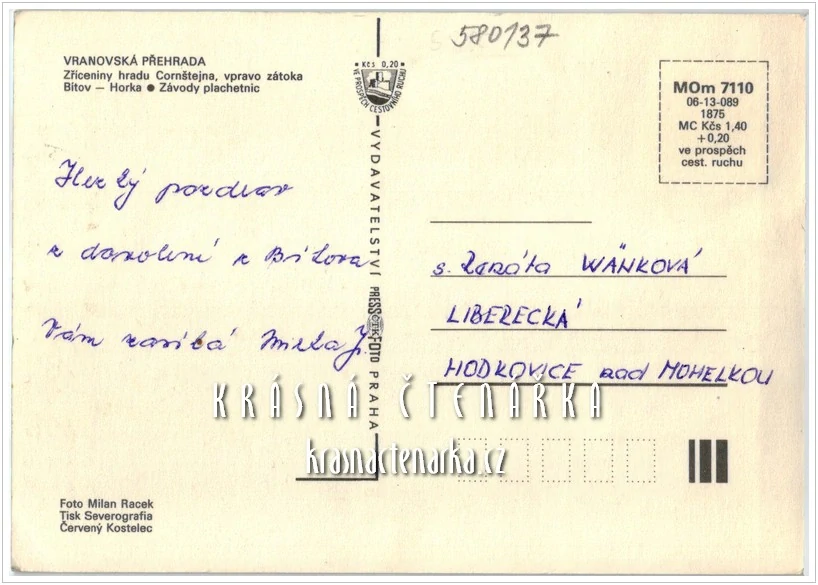 580137
VRANOVSKÁ PŘEHRADA
Zříceniny hradu Cornštejna, vpravo zátoka
Bítov — Horka ● Závody plachetnic
Kčs 0,20
VE PROSPĚCH CESTOVNÍHO RUCHU
MOm 7110
06-13-089
1875
MC Kčs 1,40
+0,20
ve prospěch
cest. ruchu
Herzký pozdrav
z dovolení z Bítova
Vám zasílá Mirka J.
VYDAVATELSTVÍ PRESSFOTO PRAHA
ČTK
s. Renáta WÄNKOVÁ
LIBERECKÁ
HODKOVICE nad MOHELKOU
KRÁSNÁ ČTENÁŘKA
krasnactenarka.cz
Foto Milan Racek
Tisk Severografia
Červený Kostelec